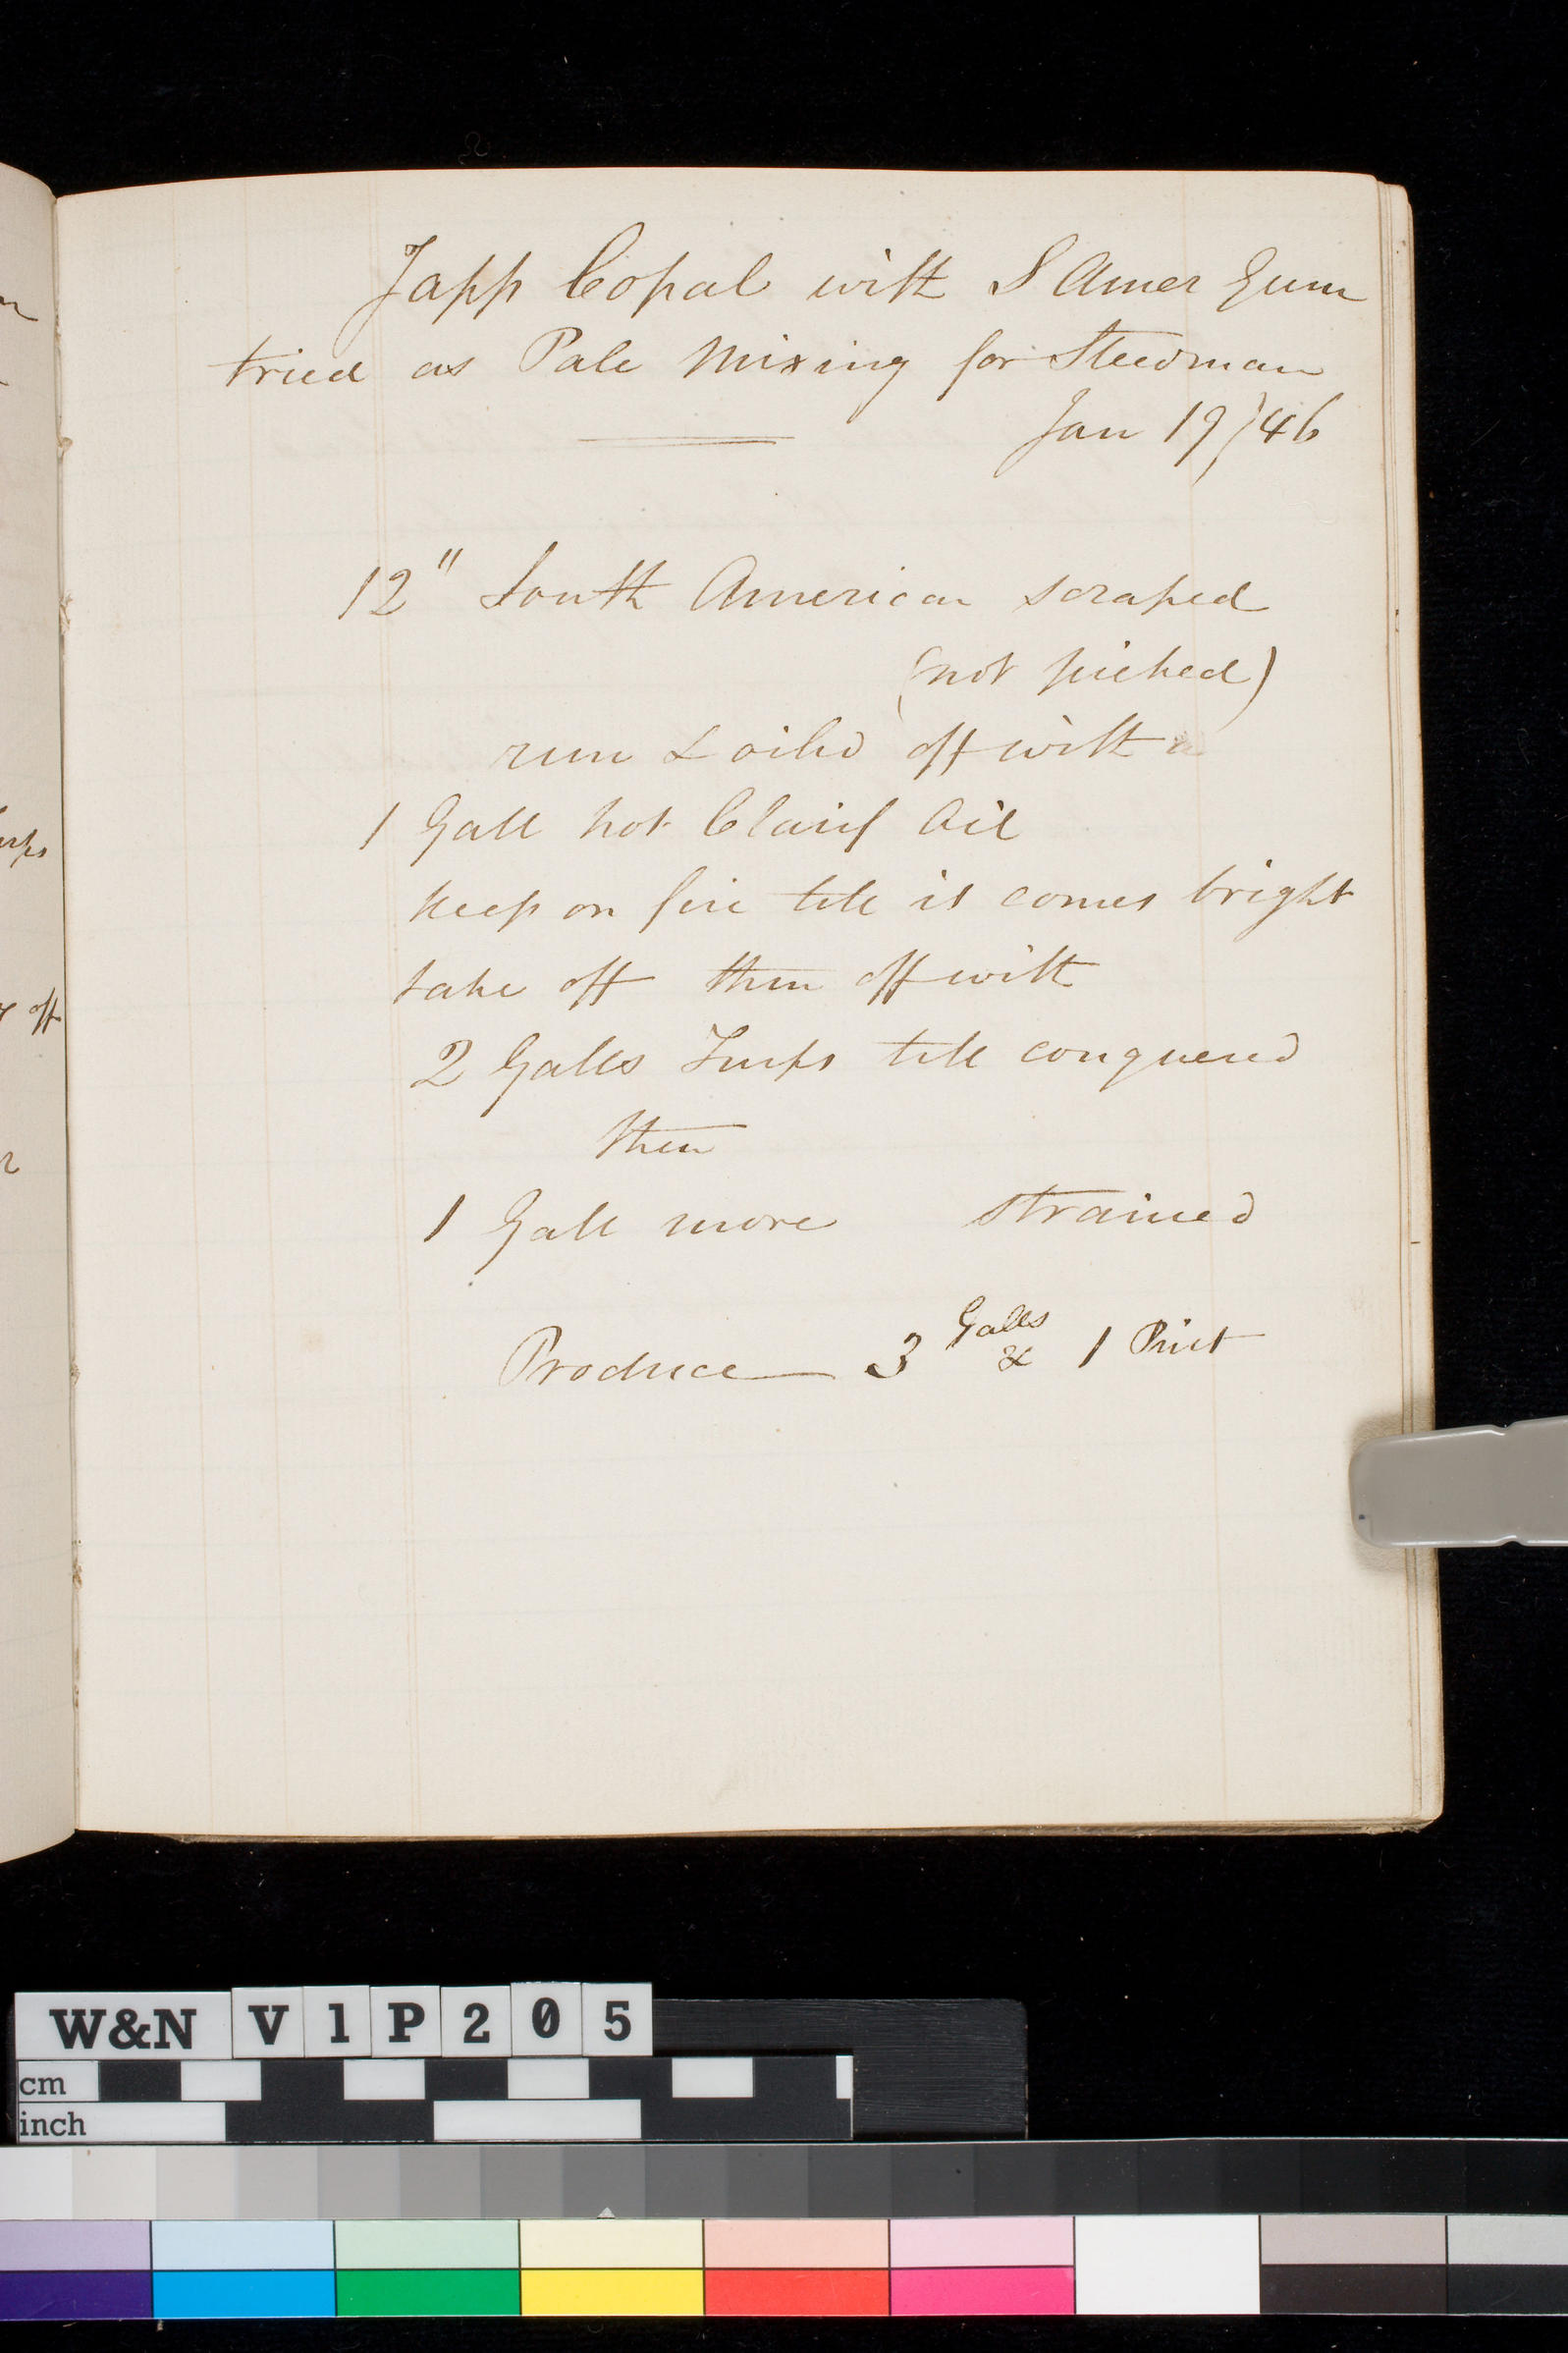 Japp Copal with S Amer Gum
tried as Pale Mixing for Steedman
Jan 19/46
12" South American scraped
(not picked)
run & oiled off with
1 Gall hot Clarif Oil
keep on fire till it comes bright
take off then off with
2 Galls Turps till conquered
then
1 Gall more strained
Produce — 3 Galls & 1 Pint
off
W&N V1P205
cm
inch